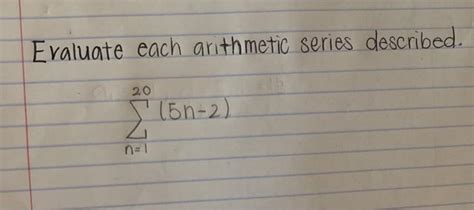 Evaluate each arithmetic series described.
20
∑ (5n-2)
n=1